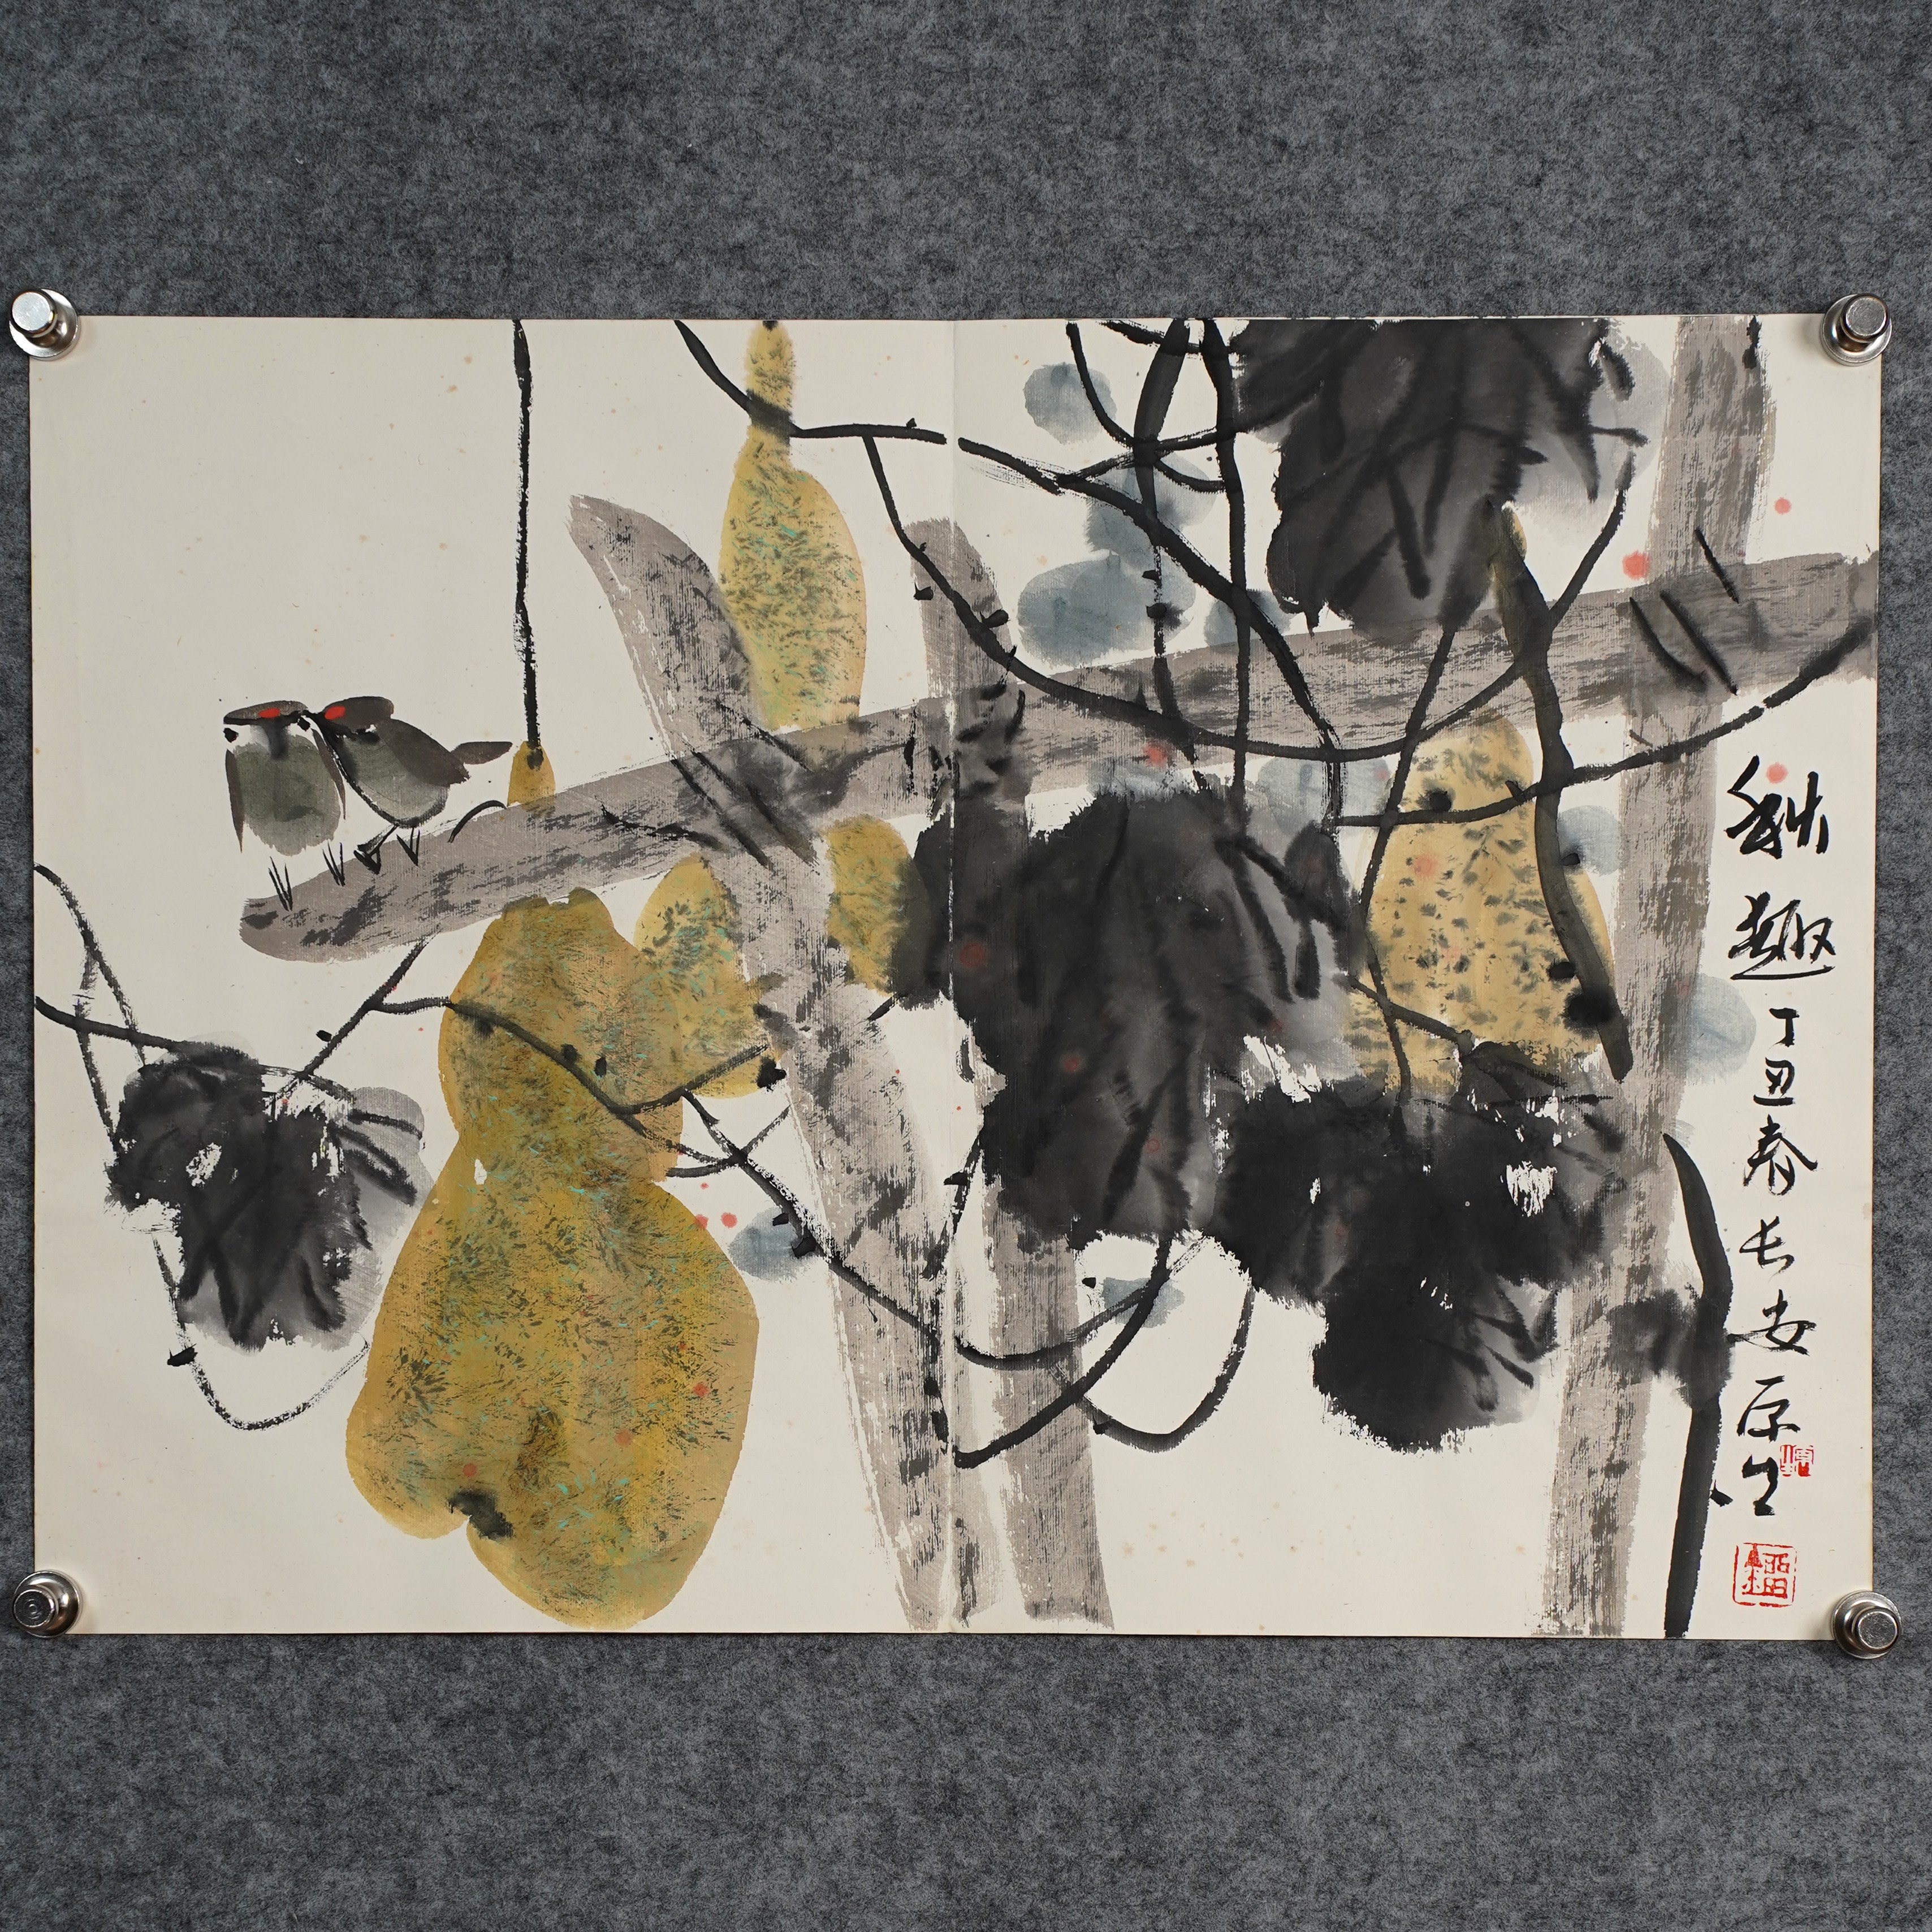 秋趣丁丑春长安原上